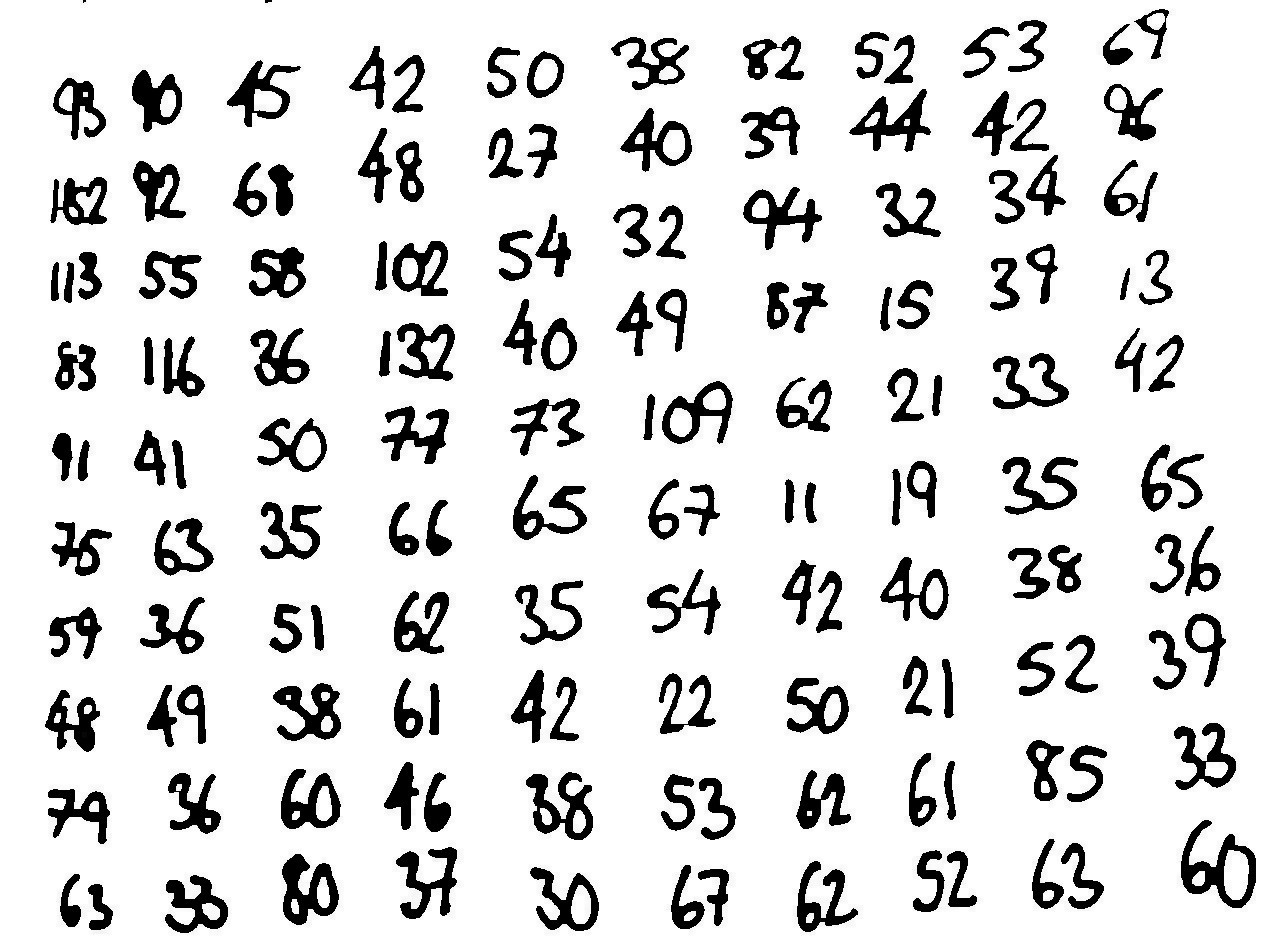 93 90 45 42 50 38 82 52 53 69
102 92 68 48 27 40 39 44 42 96
113 55 58 102 54 32 94 32 34 61
83 116 36 132 40 49 87 15 39 13
91 41 50 77 73 109 62 21 33 42
75 63 35 66 65 67 11 19 35 65
59 36 51 62 35 54 42 40 38 36
48 49 38 61 42 22 50 21 52 39
79 36 60 46 38 53 62 61 85 33
63 33 80 37 30 67 62 52 63 60